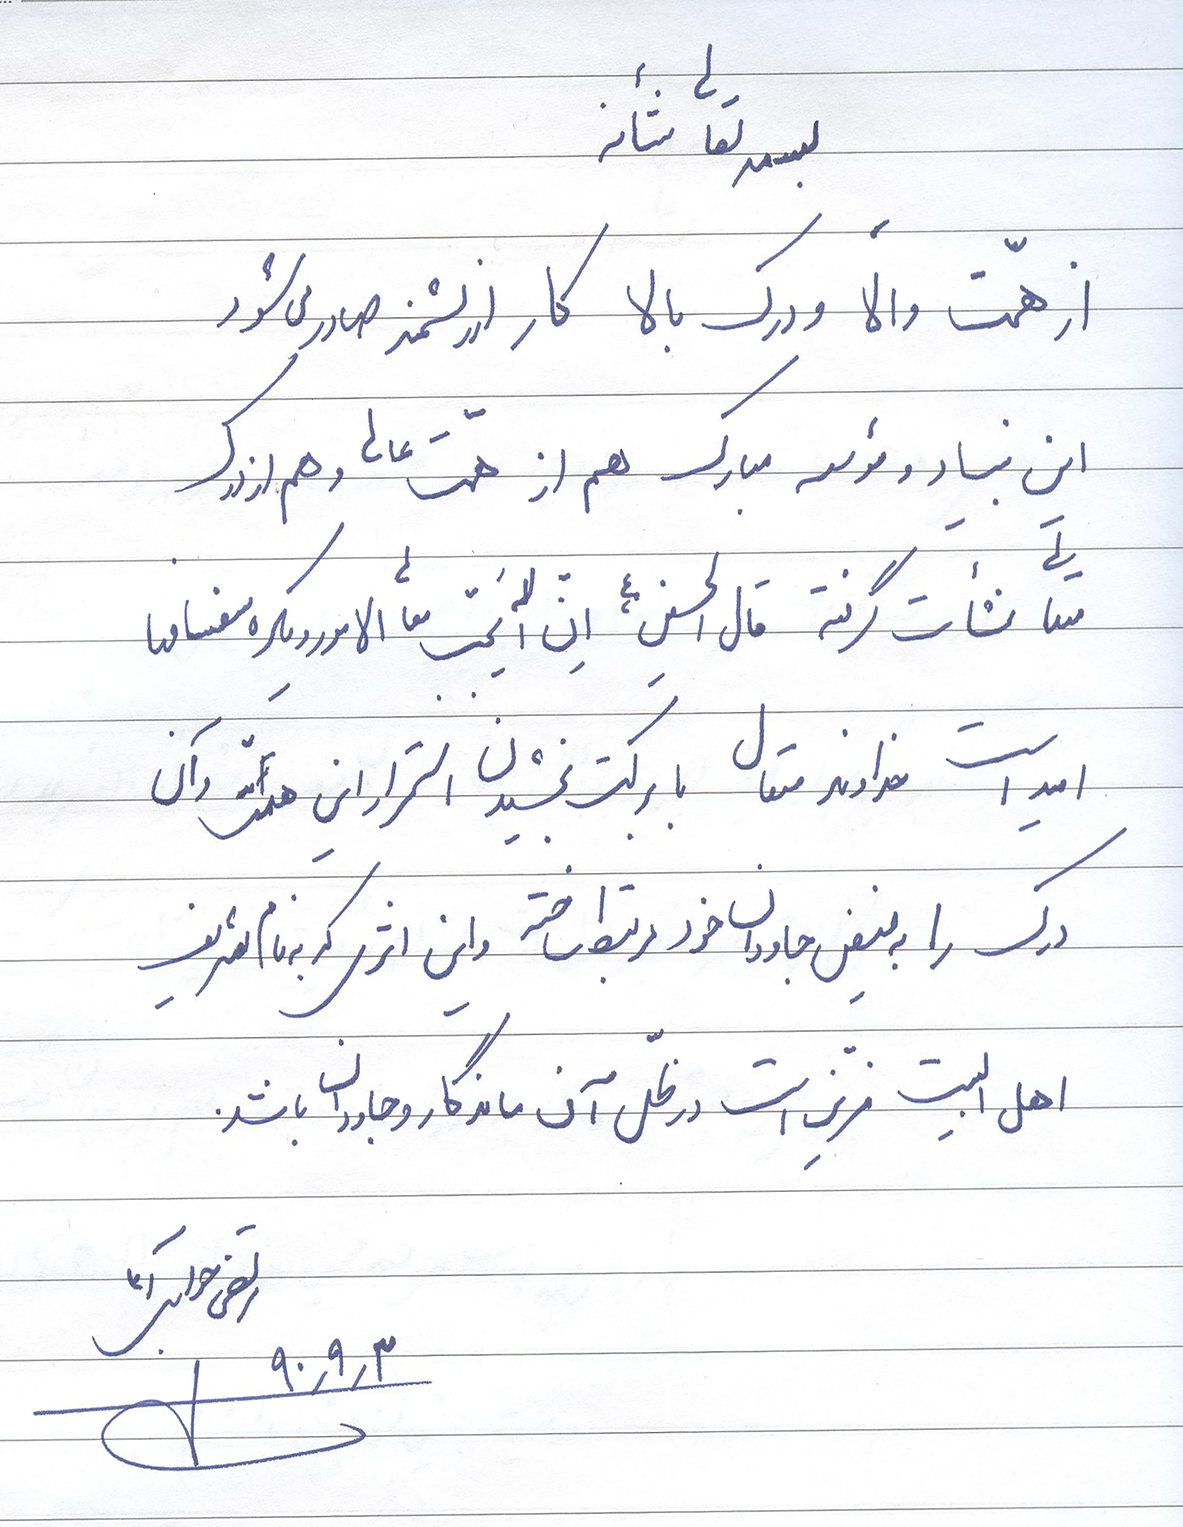 بسمه تعالی شأنه
از همّت والا و درک بالا کار ارزشمند صادر می شود
این بنیاد و مؤسسه مبارک هم از همّت عالی و هم از درک
متعالی نشأت گرفته قال الحسین ع إنّ الله یُحبّ معالی الامور و یکره سفسافها
امید است خداوند متعال با برکت بخشیدن استمرار این همّت و آن
درک را به فیض جاودان خود مرتبط ساخته و این اثری که به نام شریف
اهل البیت مزّین است در ظلّ آن ماندگار و جاودان باشد.
مرتضی جوادی آملی
۹۰٫۹٫۳